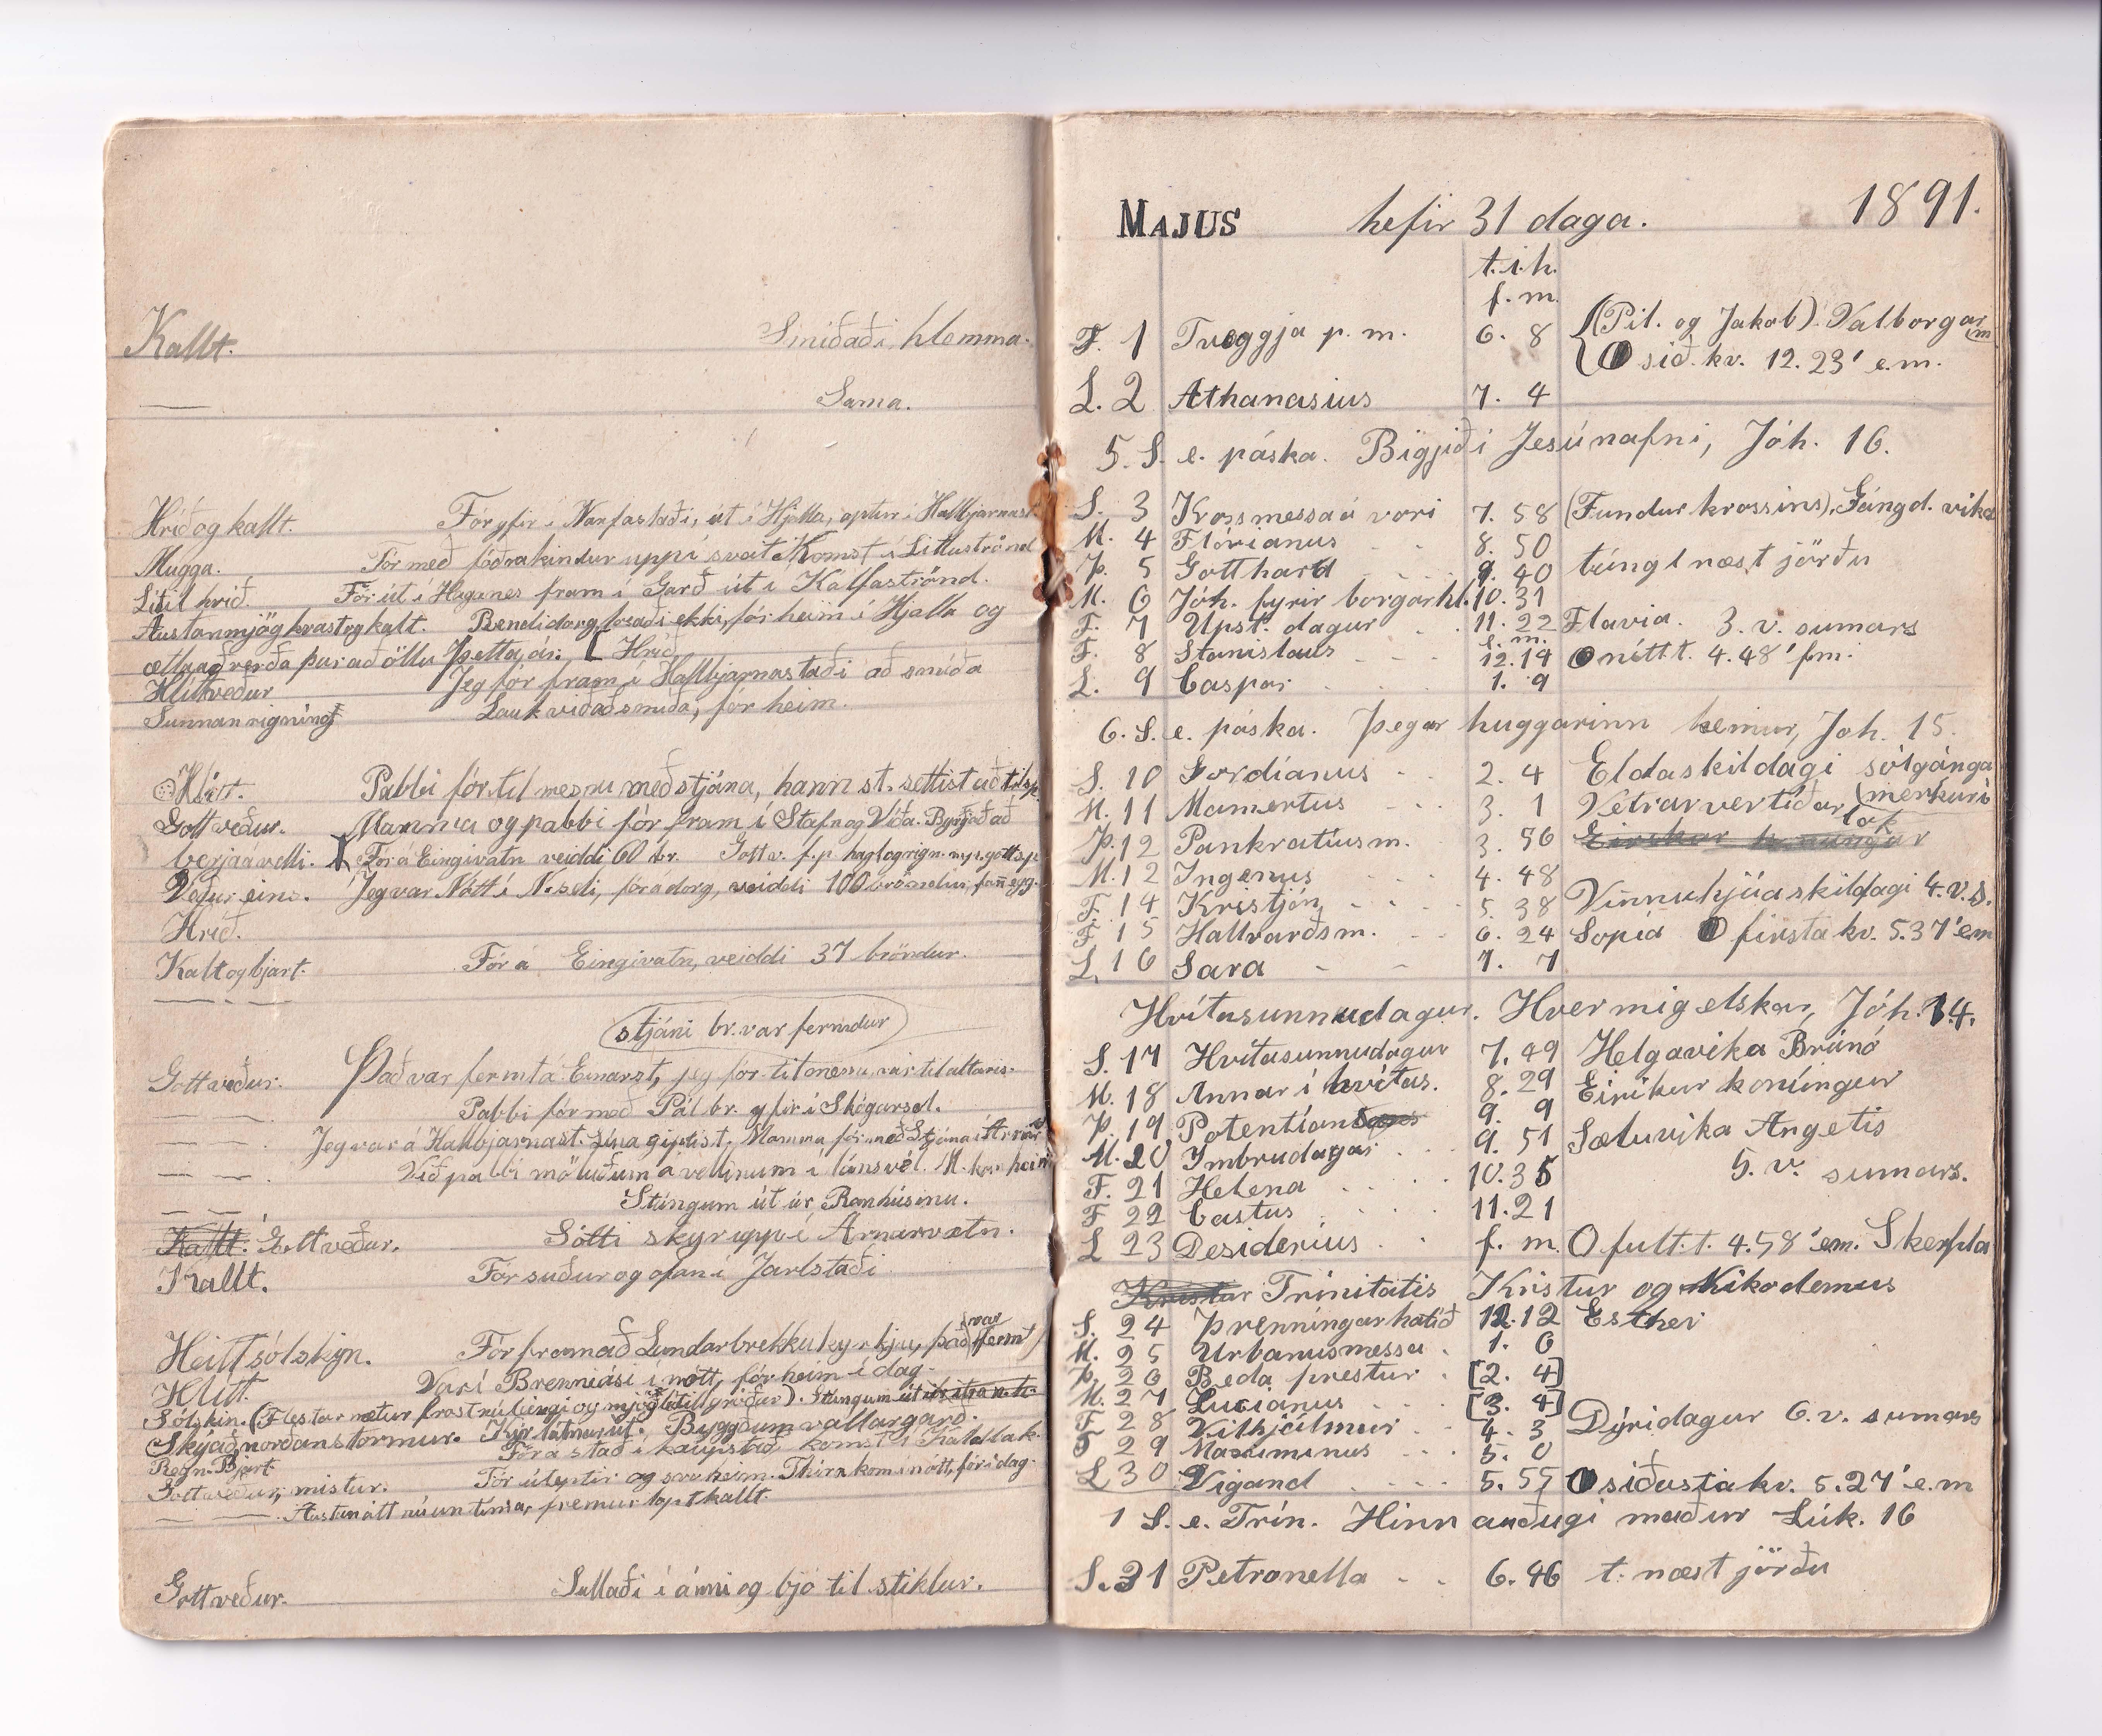 Kallt. Smíðaði hlemma.
— Sama.
Hríð og kallt. Fór yfir í Narfastaði, út í Hjalla, optur í Hallbjarnast
Mugga. Fór með fóðrakindur uppí sveit Komst í Litluströnd
Lítil hríð. Fór út í Haganes fram í Garð út í Kálfaströnd.
Austan mjög hvast og kalt. Bendidorg ekki, fór heim í Hjalla og
ætla að verða þar að öllu þetta ár. [ Hríð
Hlítveður Jeg fór fram í Hallbjarnastaði að smíða
Sunnan rigníng Lauk við að smíða, fór heim.
Hlítt. Pabbi fór til messu með stjána, hann st. settist að til sp.
Gott veður. Mamma og pabbi fór fram í Stafn og Víða. Byrjað að
berja á velli. Fór á Eingivatn veiddi 60 br. Gott v. f.p
Veður eins. Jeg var Nótt í N.seli, fór á dorg, veiddi 100 bröndur, fann egg.
Hríð.
Kalt og bjart. Fór á Eingivatn, veiddi 37 bröndur.
— — —
stjáni br. var fermdur
Gott veður. Það var fermt á Einarst, jeg fór til messu var til altaris.
— — Pabbi fór með Pál br. yfir í Skógarsel.
— — Jeg var á Hallbjarnast. Sína giptist, Mamma fór með Stjána í Arnarv
— — Við pabbi möluðum á vellinum í lánsvél. M. kom heim
— — Stúngum út úr Ranhúsinu.
Kallt. Gott veður. Sótti skyr uppí Arnarvatn.
Kallt. Fór suður og ofan í Jarlstaði
Heitt sólskin. Fór fram að Lundarbrekku kyrkju, það var fermt
Hlítt. Var í Brenniási í nótt, fór heim í dag.
Sólskin. (Flestar nætur frost nú leingi og mjög lítill gróður). Stúngum út
Skýjað, norðanstormur. Kýr látnar út. Byggðum vallargarð.
Regn. Bjart Fór á stað í kaupstað komst í Kaldbak.
Gott veður, mistur. Fór út eptir og svo heim. Thíra kom í nótt, fór í dag.
— — Austanátt nú um tíma, fremur opt kallt.
Gott veður. Sullaði í ánni og bjó til stiklur.
MAJUS hefir 31 daga. 1891.
t. í. h.
f. m.
F. 1 Tveggja p. m. 6. 8 (Pil. og Jakob). Valborgar m
síð. kv. 12. 23' e.m.
L. 2 Athanasius 7. 4
5. S. e. páska. Biðjið í Jesú nafni, Jóh. 16.
S. 3 Krossmessa á vori 7. 58 (Fundur krossins). Gángd. vika
M. 4 Flórianus 8. 50
Þ. 5 Gotthard 9. 40 túngl næst jörðu
M. 6 Jóh. fyrir borgarhl. 10. 31
F. 7 Upst. dagur 11. 22 Flavia. 3. v. sumars
e. m.
F. 8 Stanislaus 12. 14 nítt t. 4. 48' fm.
L. 9 Caspar 1. 9
6. S. e. páska. Þegar huggarinn kemur, Joh. 15.
S. 10 Gordíanus 2. 4 Eldaskildagi sólgánga
M. 11 Mamertus 3. 1 Vetrarvertíðar lok (merkurí
Þ. 12 Pankratíusm. 3. 56
M. 12 Ingenus 4. 48
F. 14 Kristján 5. 38 Vinnuhjúaskildagi 4. v. s.
F 15 Hallvarðsm. 6. 24 Sopía firsta kv. 5. 37' em
L. 16 Sara 7. 7
Hvítasunnudagur. Hver mig elskar, Jóh. 14.
S. 17 Hvítasunnudagur 7. 49 Helgavika Brúnó
M. 18 Annar í hvítas. 8. 29 Eiríkur konúngur
Þ. 19 Potentían 9. 9
M. 20 Ymbrudagar 9. 51 Sæluvika Angetis
F. 21 Helena 10. 35 5. v. sumars.
F 22 Castus 11. 21
L 23 Desiderius f. m. O fullt. t. 4. 58' em. Skerpla
Trínitatis Kristur og Nikodemus
S. 24 Þrenníngarhátíð 12. 12 Esther
M. 25 Urbanusmessa 1. 0
Þ. 26 Beda prestur [2. 4]
M. 27 Lucianus [3. 4]
F 28 Vilhjálmur 4. 3 Dýridagur 6. v. sumars
F 29 Maximinus 5. 0
L 30 Vigand 5. 55 síðasta kv. 5. 27' e.m
1 S. e. Trín. Hinn auðugi maður Lúk. 16
S. 31 Petronella 6. 46 t. næst jörðu